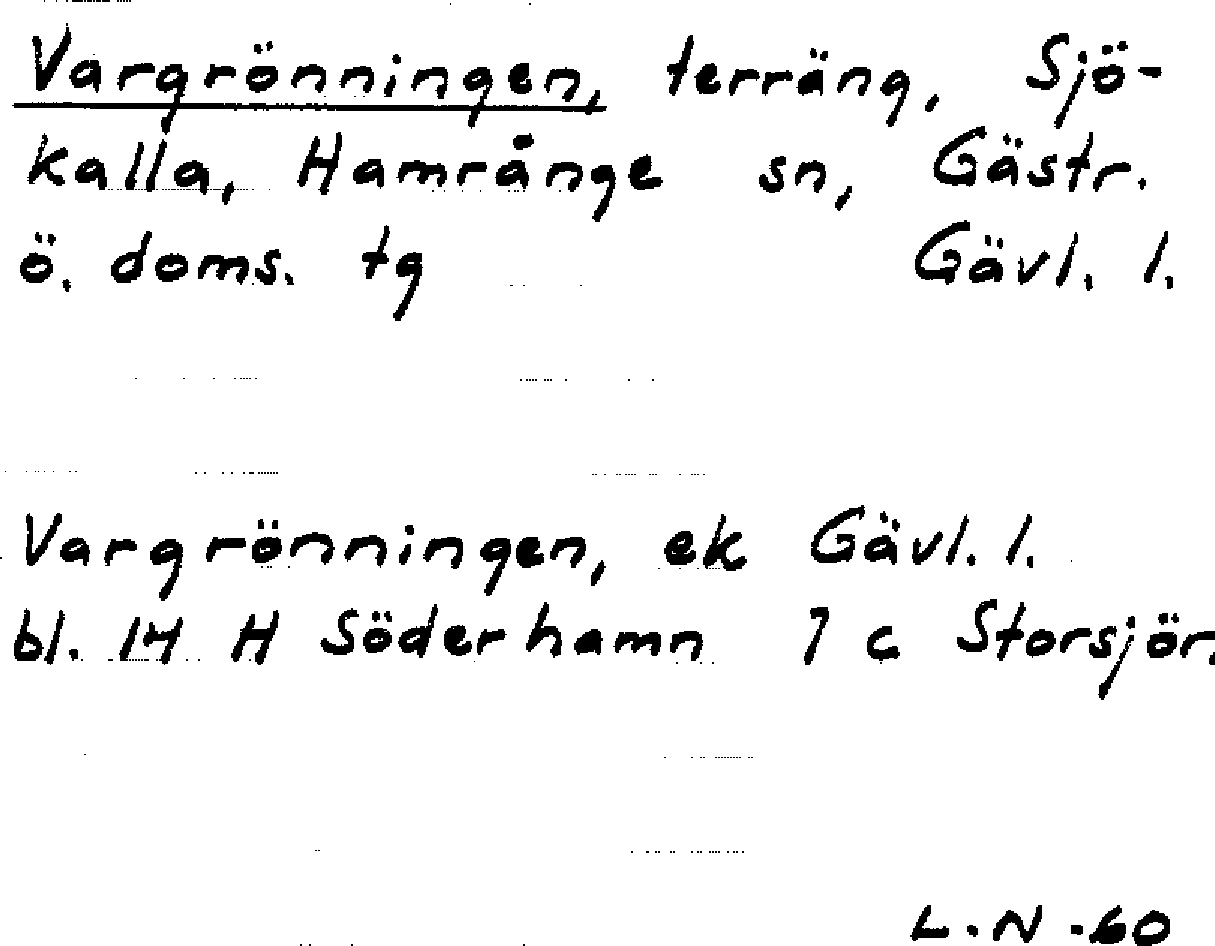 Vargrönningen, terräng, Sjö-
kalla, Hamrånge sn, Gästr.
ö. doms. tg Gävl. l.
Vargrönningen, ek Gävl. l.
bl. 14 H Söderhamn 7 c Storsjön.
L.N.-60